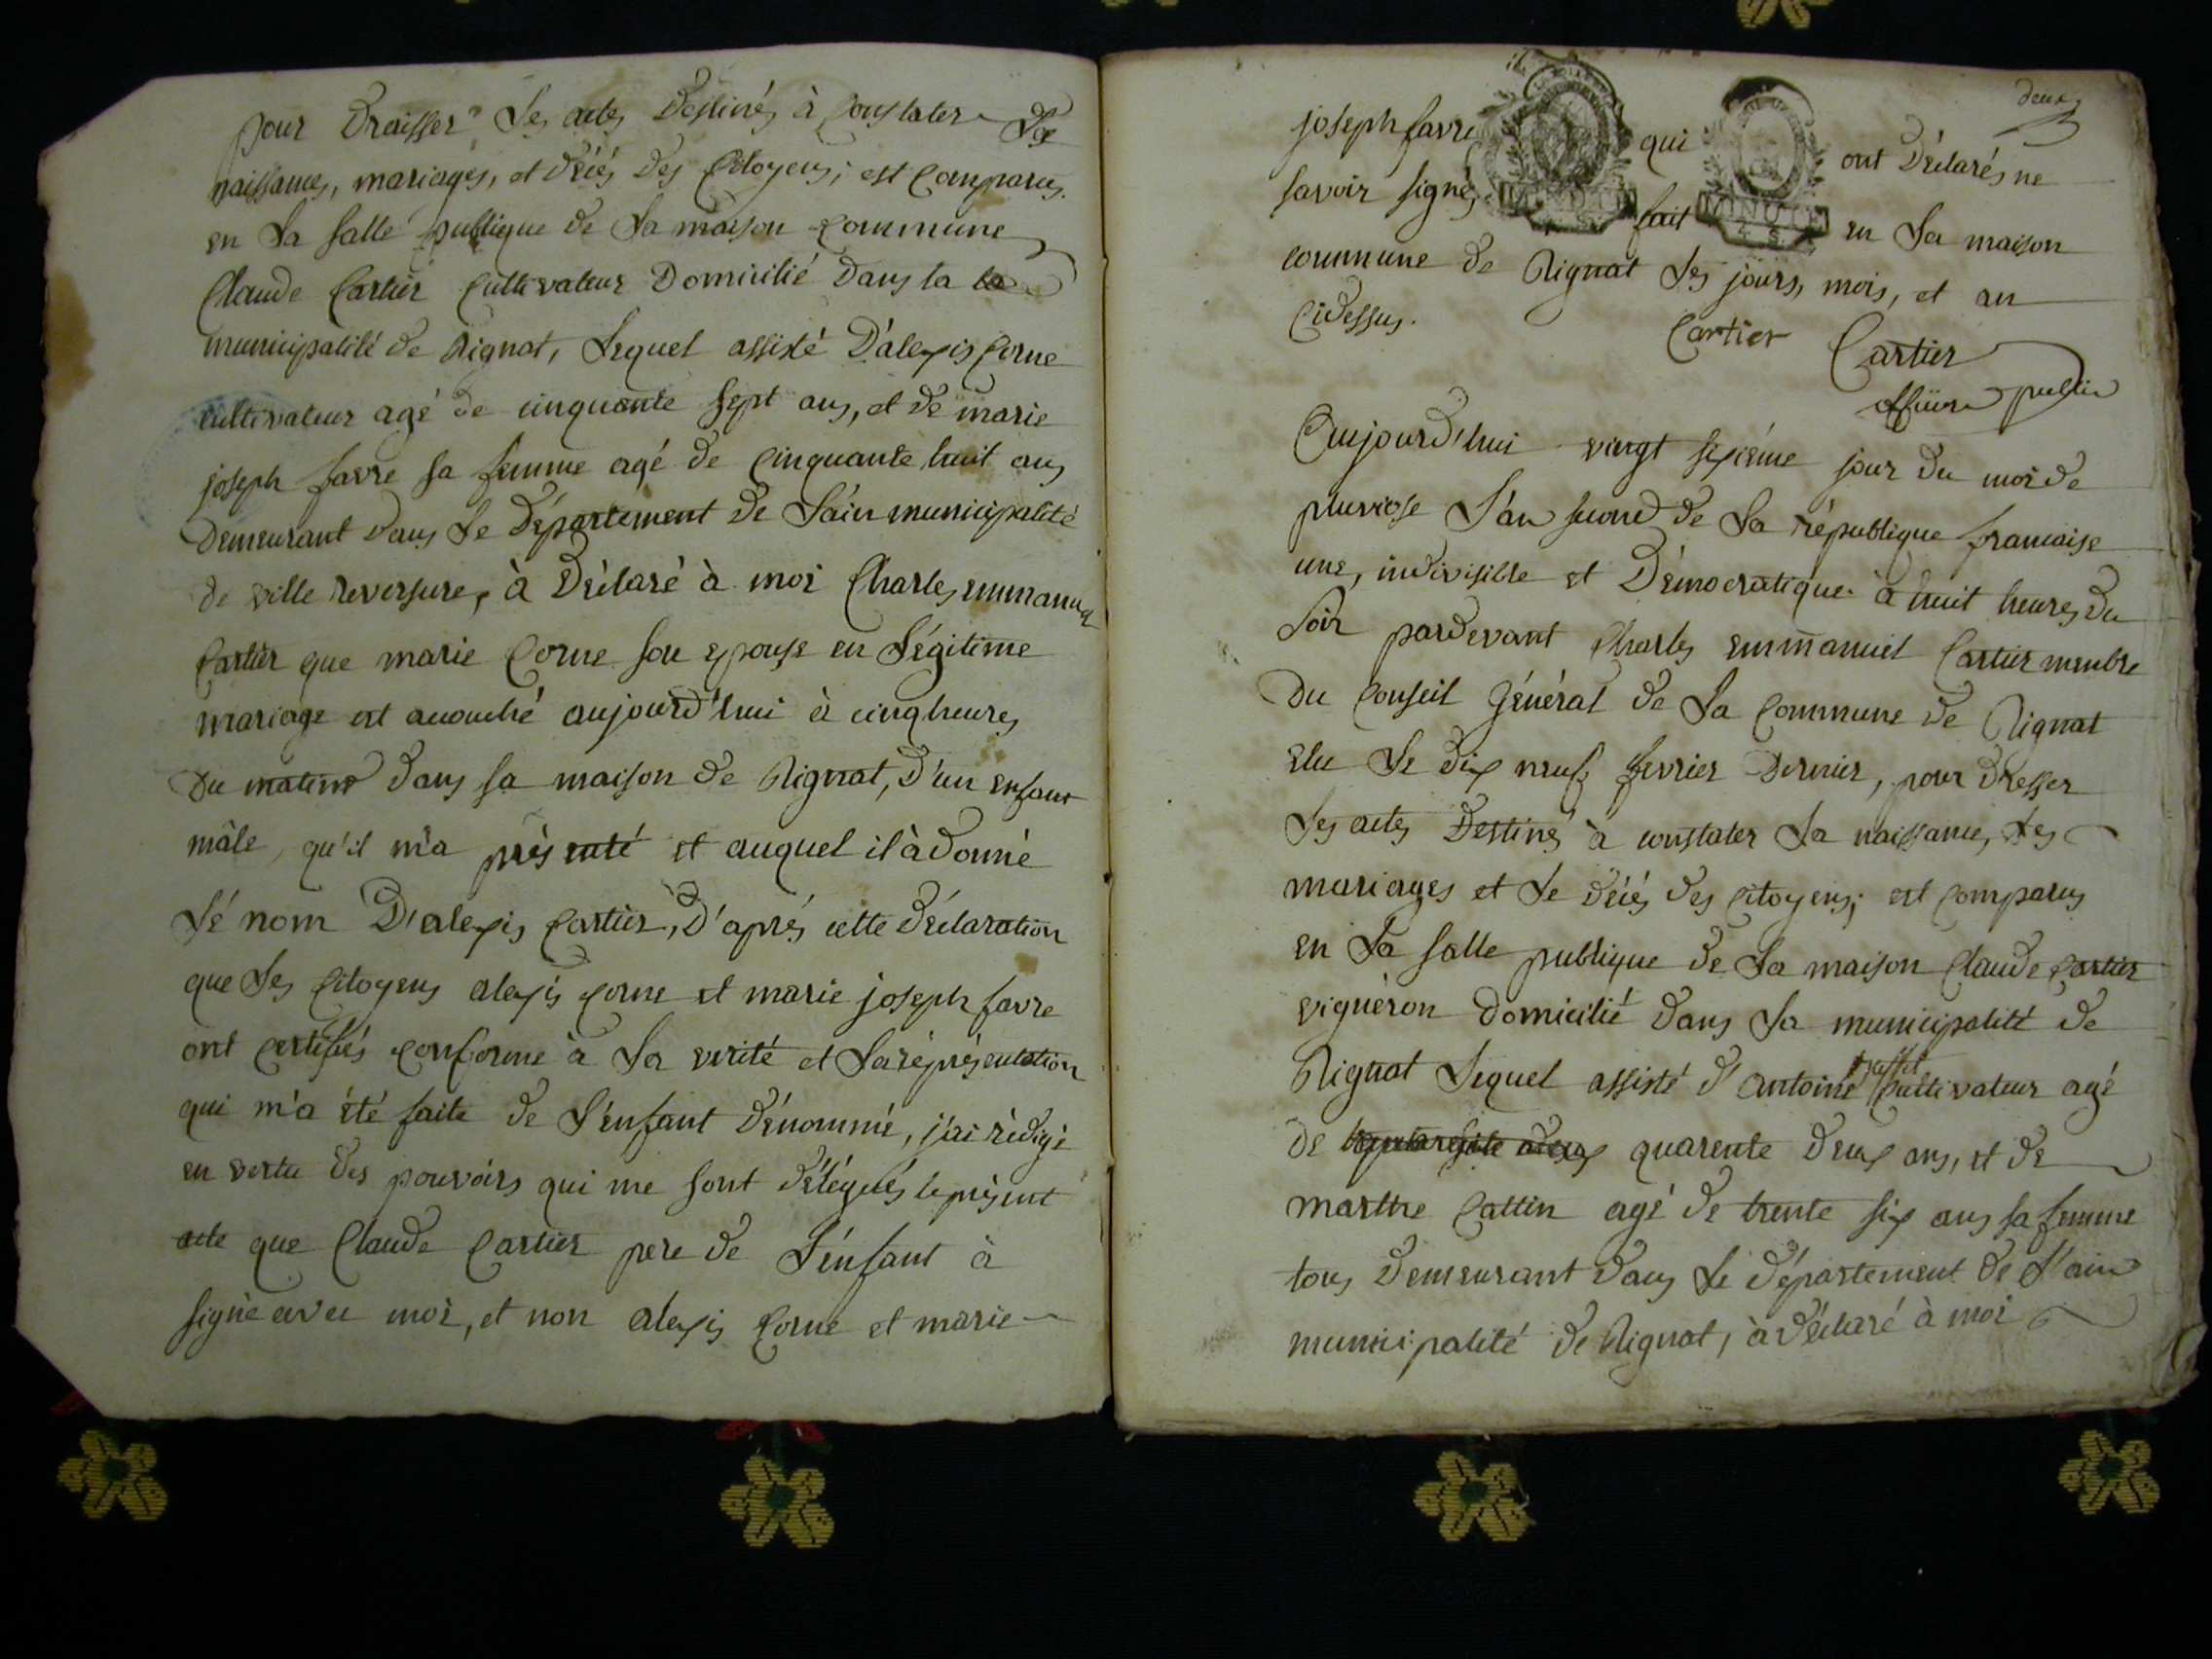 pour draisser les actes destinés à constater la
naissances, mariagés, et décés des citoyens; est comparus.
en la salle publique de la maison commune
Claude Cartier cultivateur domicilié dans la la
municipalité de Rignat, lequel assisté d'alexis Corne
cultivateur agé de cinquante sept ans, et de marie
joseph favre sa femme agé de cinquante huit ans
demeurant dans le département de l'ain municipalité
de ville reversure, à déclaré à moi Charles emmanuel
Cartier que marie Corne son epouse en légitime
mariage est accouché aujourd'hui à cinq heures
du matin dans sa maison de Rignat, d'un enfant
mâle, qu'il m'a présenté et auquel il à donné
lé nom d'alexis Cartier, d'aprés cette déclaration
que les citoyens alexis corne et marie joseph favre
ont certifiés conforme à la verité et la réprésentation
qui m'a été faite de l'énfant dénommé, j'ai rèdigé
en vertu des pouvoirs qui me sont délégués le présent
acte que Claude Cartier pere de l'énfant à
signé avec moi, et non alexis Corne et marie
deux
joseph favre qui ont déclarés ne
savoir signé, fait en la maison
MINUTE MINUTE
commune de Rignat les jours, mois, et an
cidessus.
Cartier Cartier
officier public
Aujourd'hui vingt sixiéme jour du mois de
pluviose l'an second de la république francaise
une, indivisible et démocratique à huit heures du
soir pardevant Charles emmanuel Cartier membre
du conseil général de la commune de Rignat
elu le dix neuf fevrier dernier, pour dresser
les actes destinés à constater la naissance, les
mariages et le décés des citoyens; est comparus
en la salle publique de la maison Claude Cartier
vigneron domicilié dans la municipalité de
Rignat lequel assisté d'antoine cultivateur agé
de quarente deux ans, et de
marthe Cattin agé de trente six ans sa femme
tous demeurant dans le département de l'ain
municipalité de Rignat, à déclaré à moi